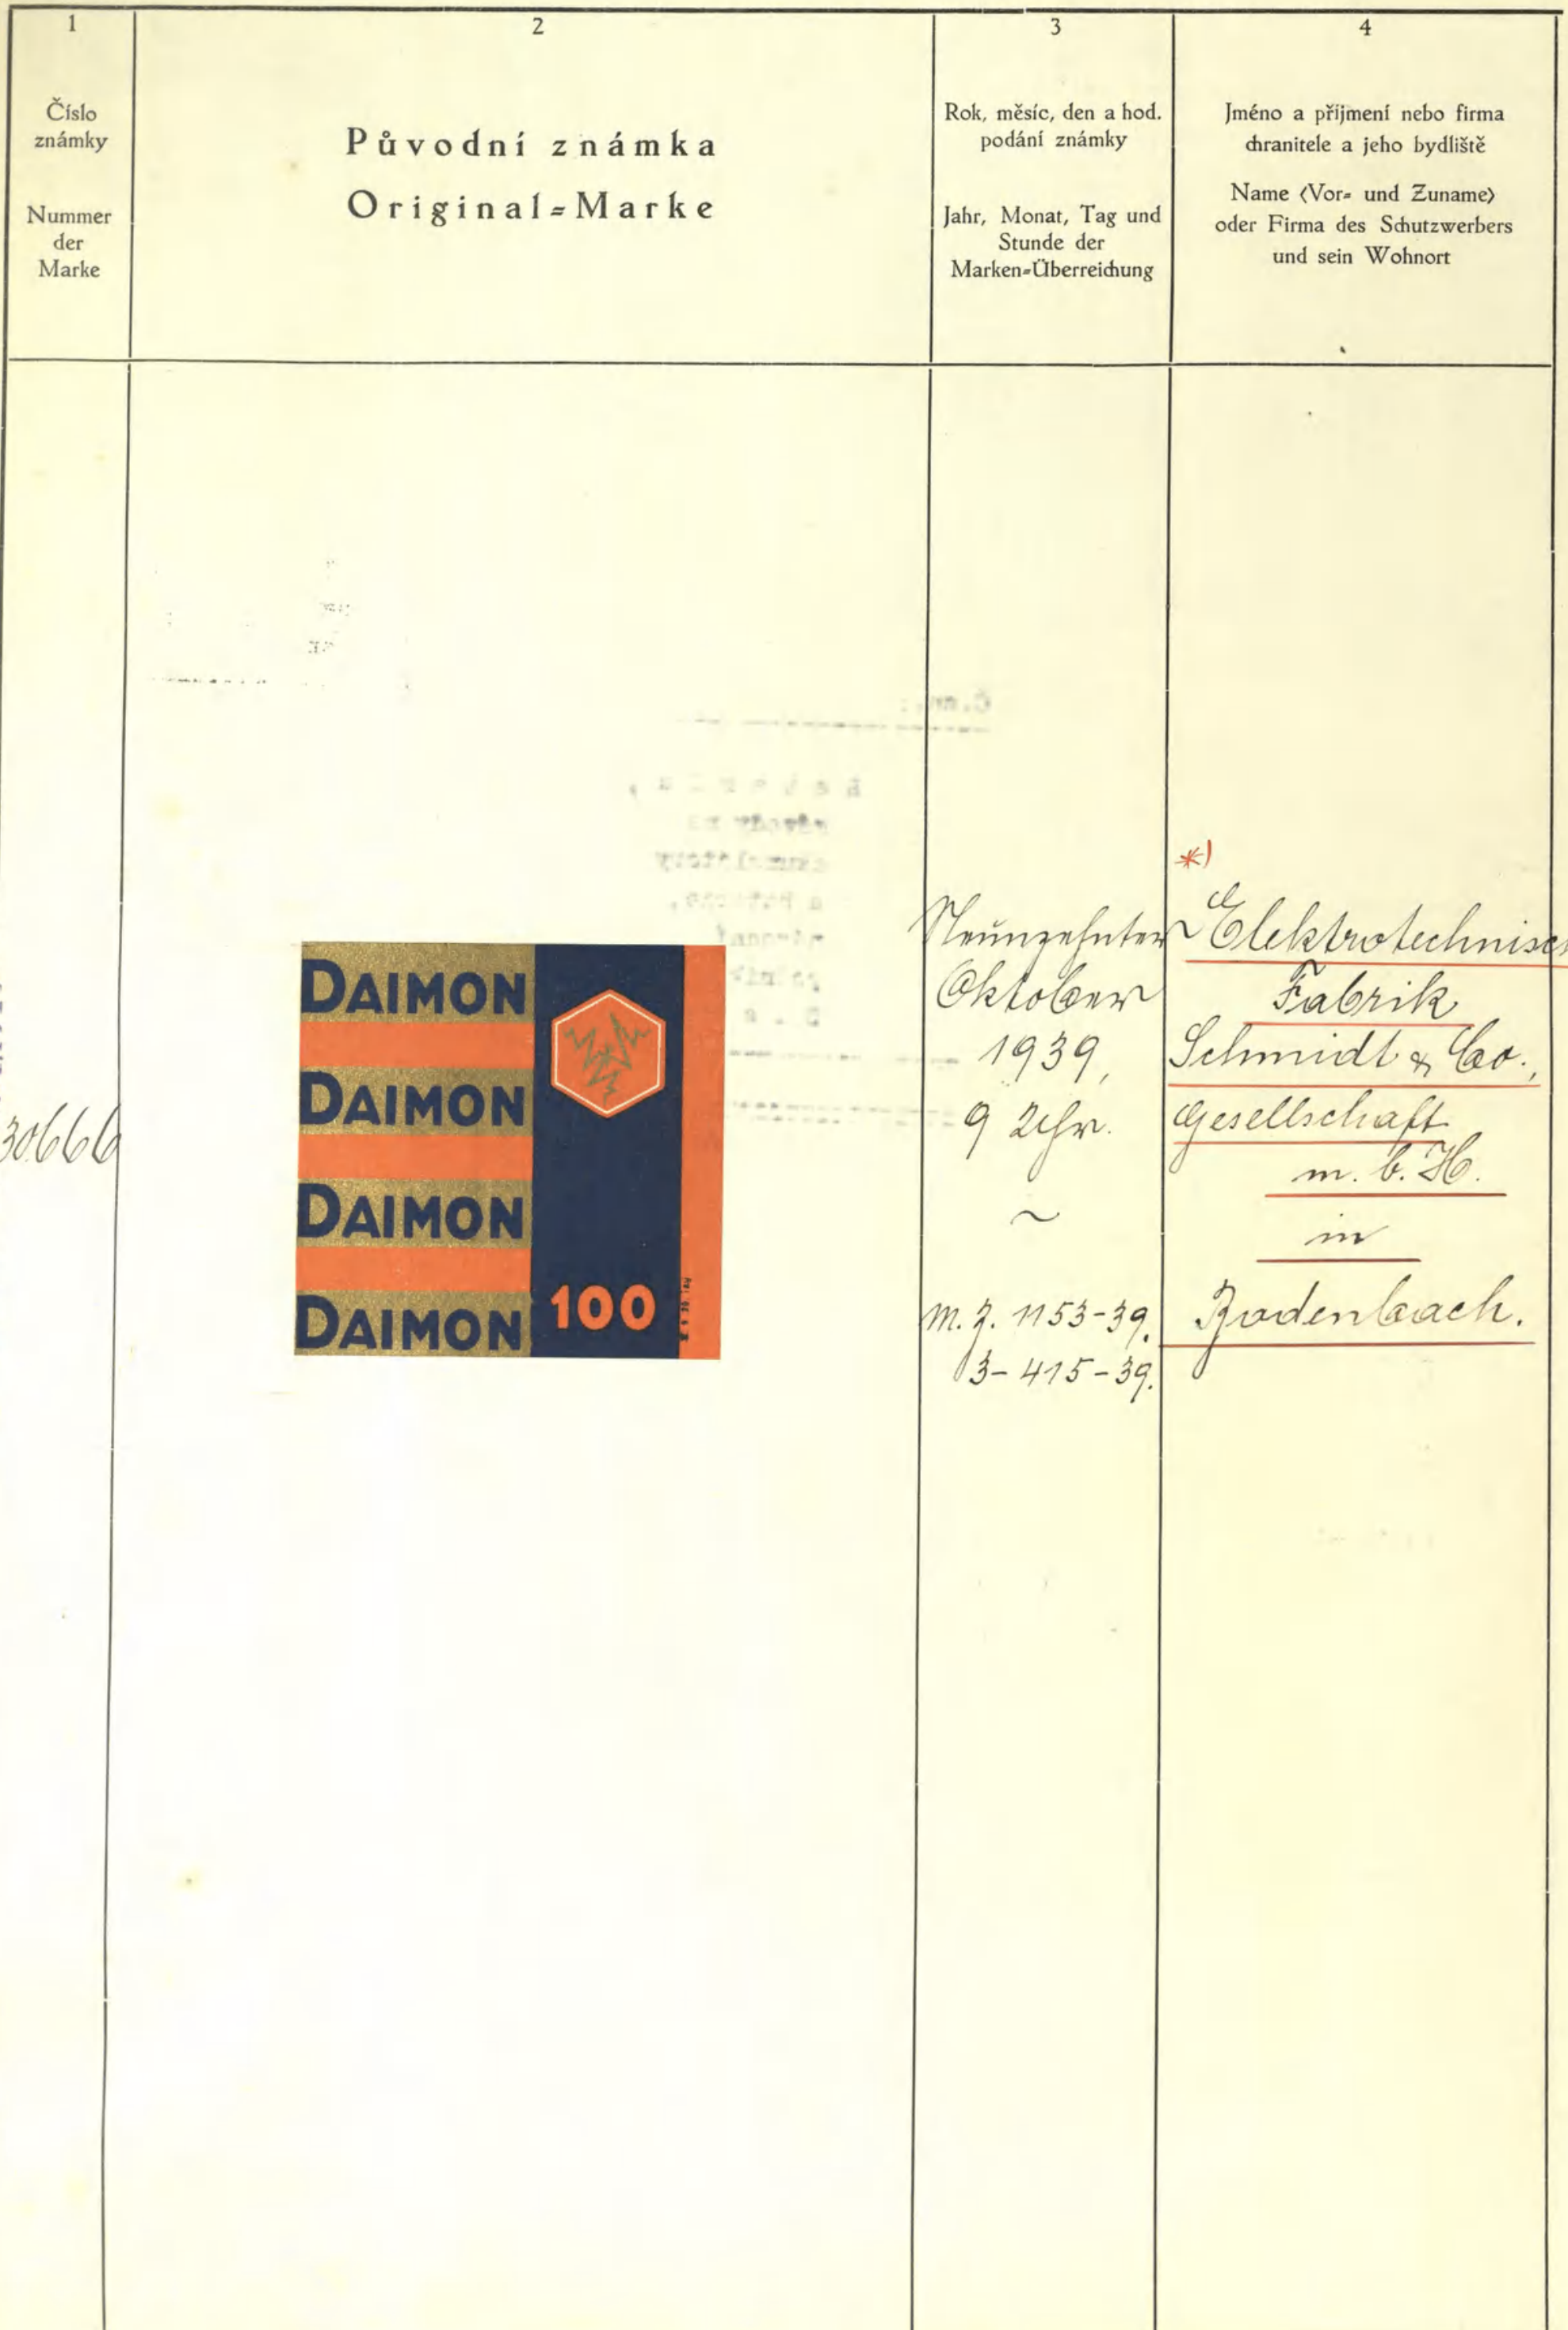 1
Číslo
známky
Nummer
der
Marke
2
Původní známka
Original=Marke
3
Rok, měsíc, den a hod.
podání známky
Jahr, Monat, Tag und
Stunde der
Marken=Überreichung
4
Jméno a příjmení nebo firma
chranitele a jeho bydliště
Name (Vor= und Zuname)
oder Firma des Schutzwerbers
und sein Wohnort
30666
DAIMON
DAIMON
DAIMON
DAIMON
100
Neunzehnter
Oktober
1939,
9 Uhr.
~
M. Z. 1153-39.
13-415-39.
*)
Elektrotechnisch
Fabrik
Schmidt & Co.,
Gesellschaft
m. b. H.
in
Bodenbach.